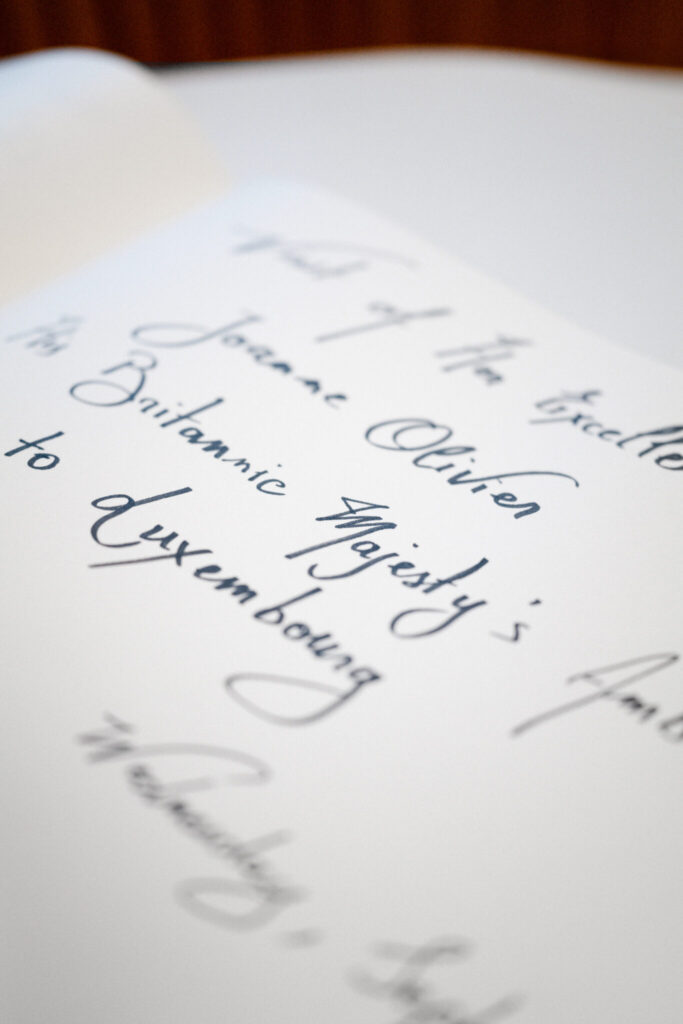 Visit of Her Excelle
Joanne Olivier
His Britannic Majesty's Amb
to Luxembourg
Wednesday, Sept